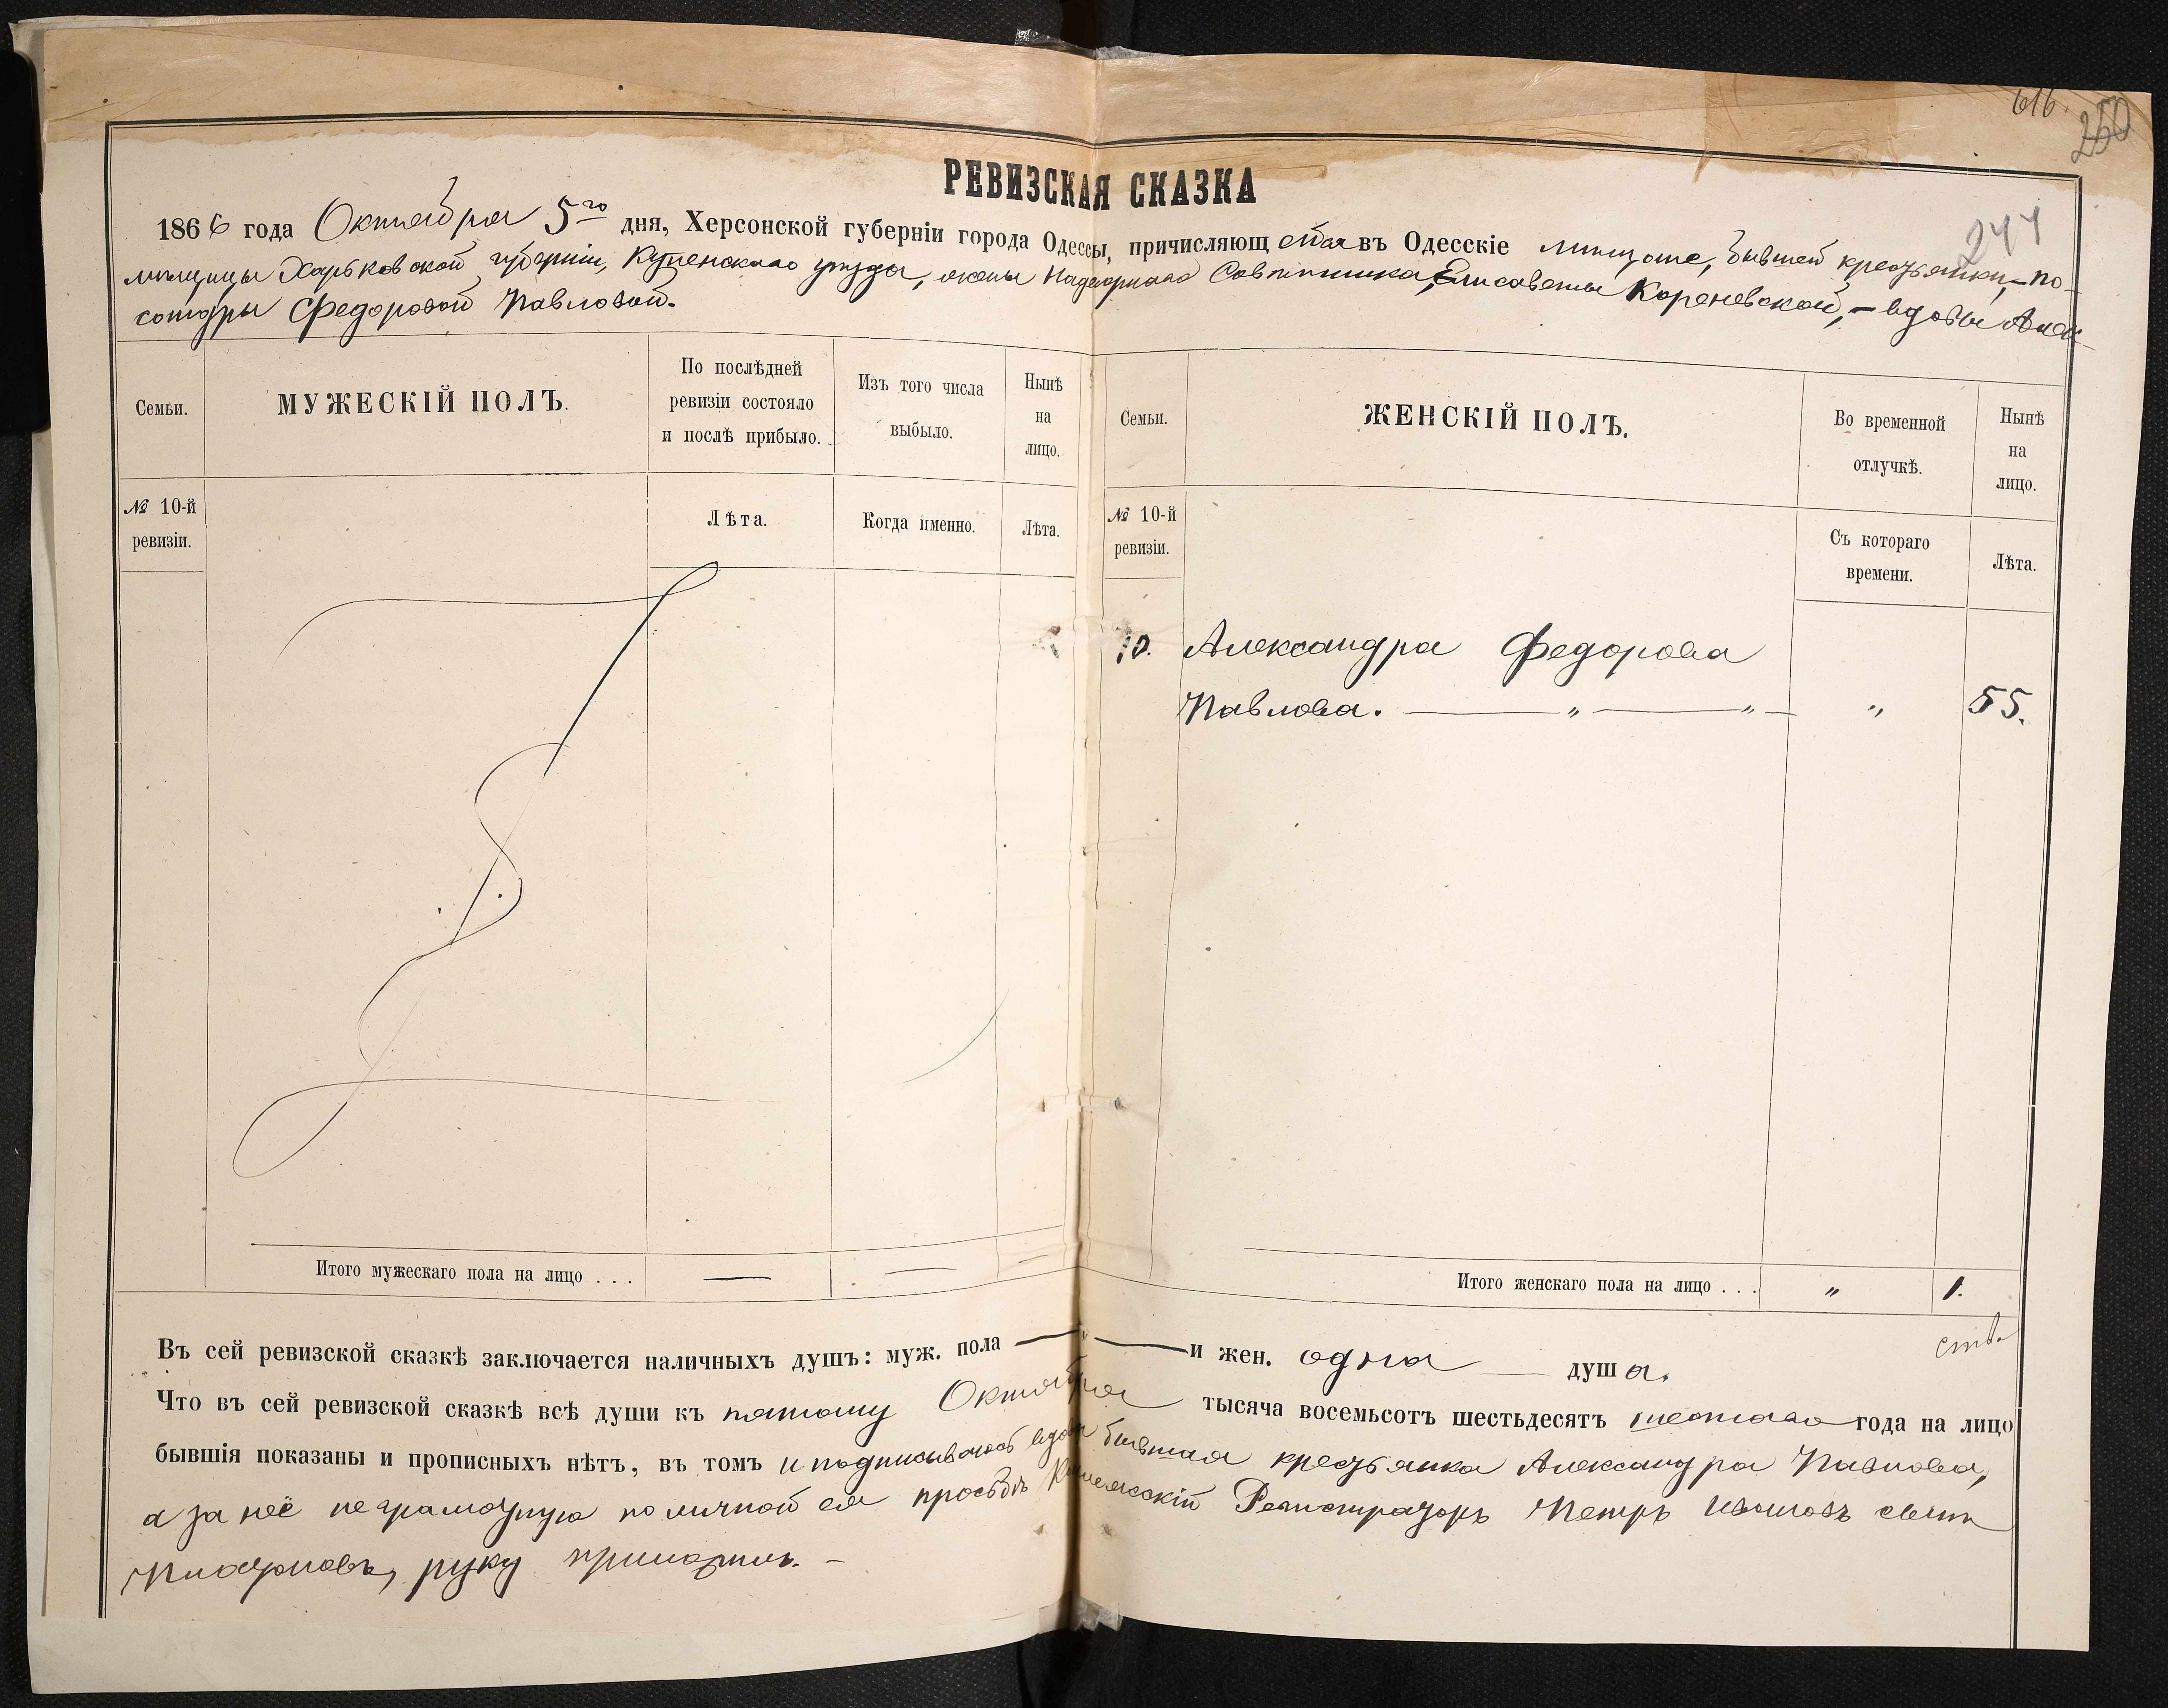 616.
250
244
РЕВИЗСКАЯ СКАЗКА
1866 года Октября 5го дня, Херсонской губерніи города Одессы, причисляющейся въ Одесскіе мѣщане, бывшей крестьянки, по-
мѣщицы Харьковской губерніи, Купенскаго уѣзда, жены Надворнаго Совѣтника, Елисаветы Кореневской, – вдовы Алек-
сандры Федоровой Павловой.
Семьи.
МУЖЕСКІЙ ПОЛЪ.
По послѣдней ревизіи состояло и послѣ прибыло.
Изъ того числа выбыло.
Нынѣ на лицо.
Семьи.
ЖЕНСКІЙ ПОЛЪ.
Во временной отлучкѣ.
Нынѣ на лицо.
№ 10-й ревизіи.
Лѣта.
Когда именно.
Лѣта.
№ 10-й ревизіи.
Съ котораго времени.
Лѣта.
10. Александра Федорова
Павлова. — „ — „ — „ 55.
Итого мужескаго пола на лицо . . . — —
Итого женскаго пола на лицо . . . „ 1.
Въ сей ревизской сказкѣ заключается наличныхъ душъ: муж. пола — „ — и жен. одна — душа.
Что въ сей ревизской сказкѣ всѣ души къ пятому Октября тысяча восемьсотъ шестьдесятъ шестаго года на лицо
бывшія показаны и прописныхъ нѣтъ, въ томъ и подписываюсь вдова бывшая крестьянка Александра Павлова,
а за неё неграмотную по личной ея просьбѣ Регистраторъ Петръ Ивановъ сынъ
руку приложилъ. –